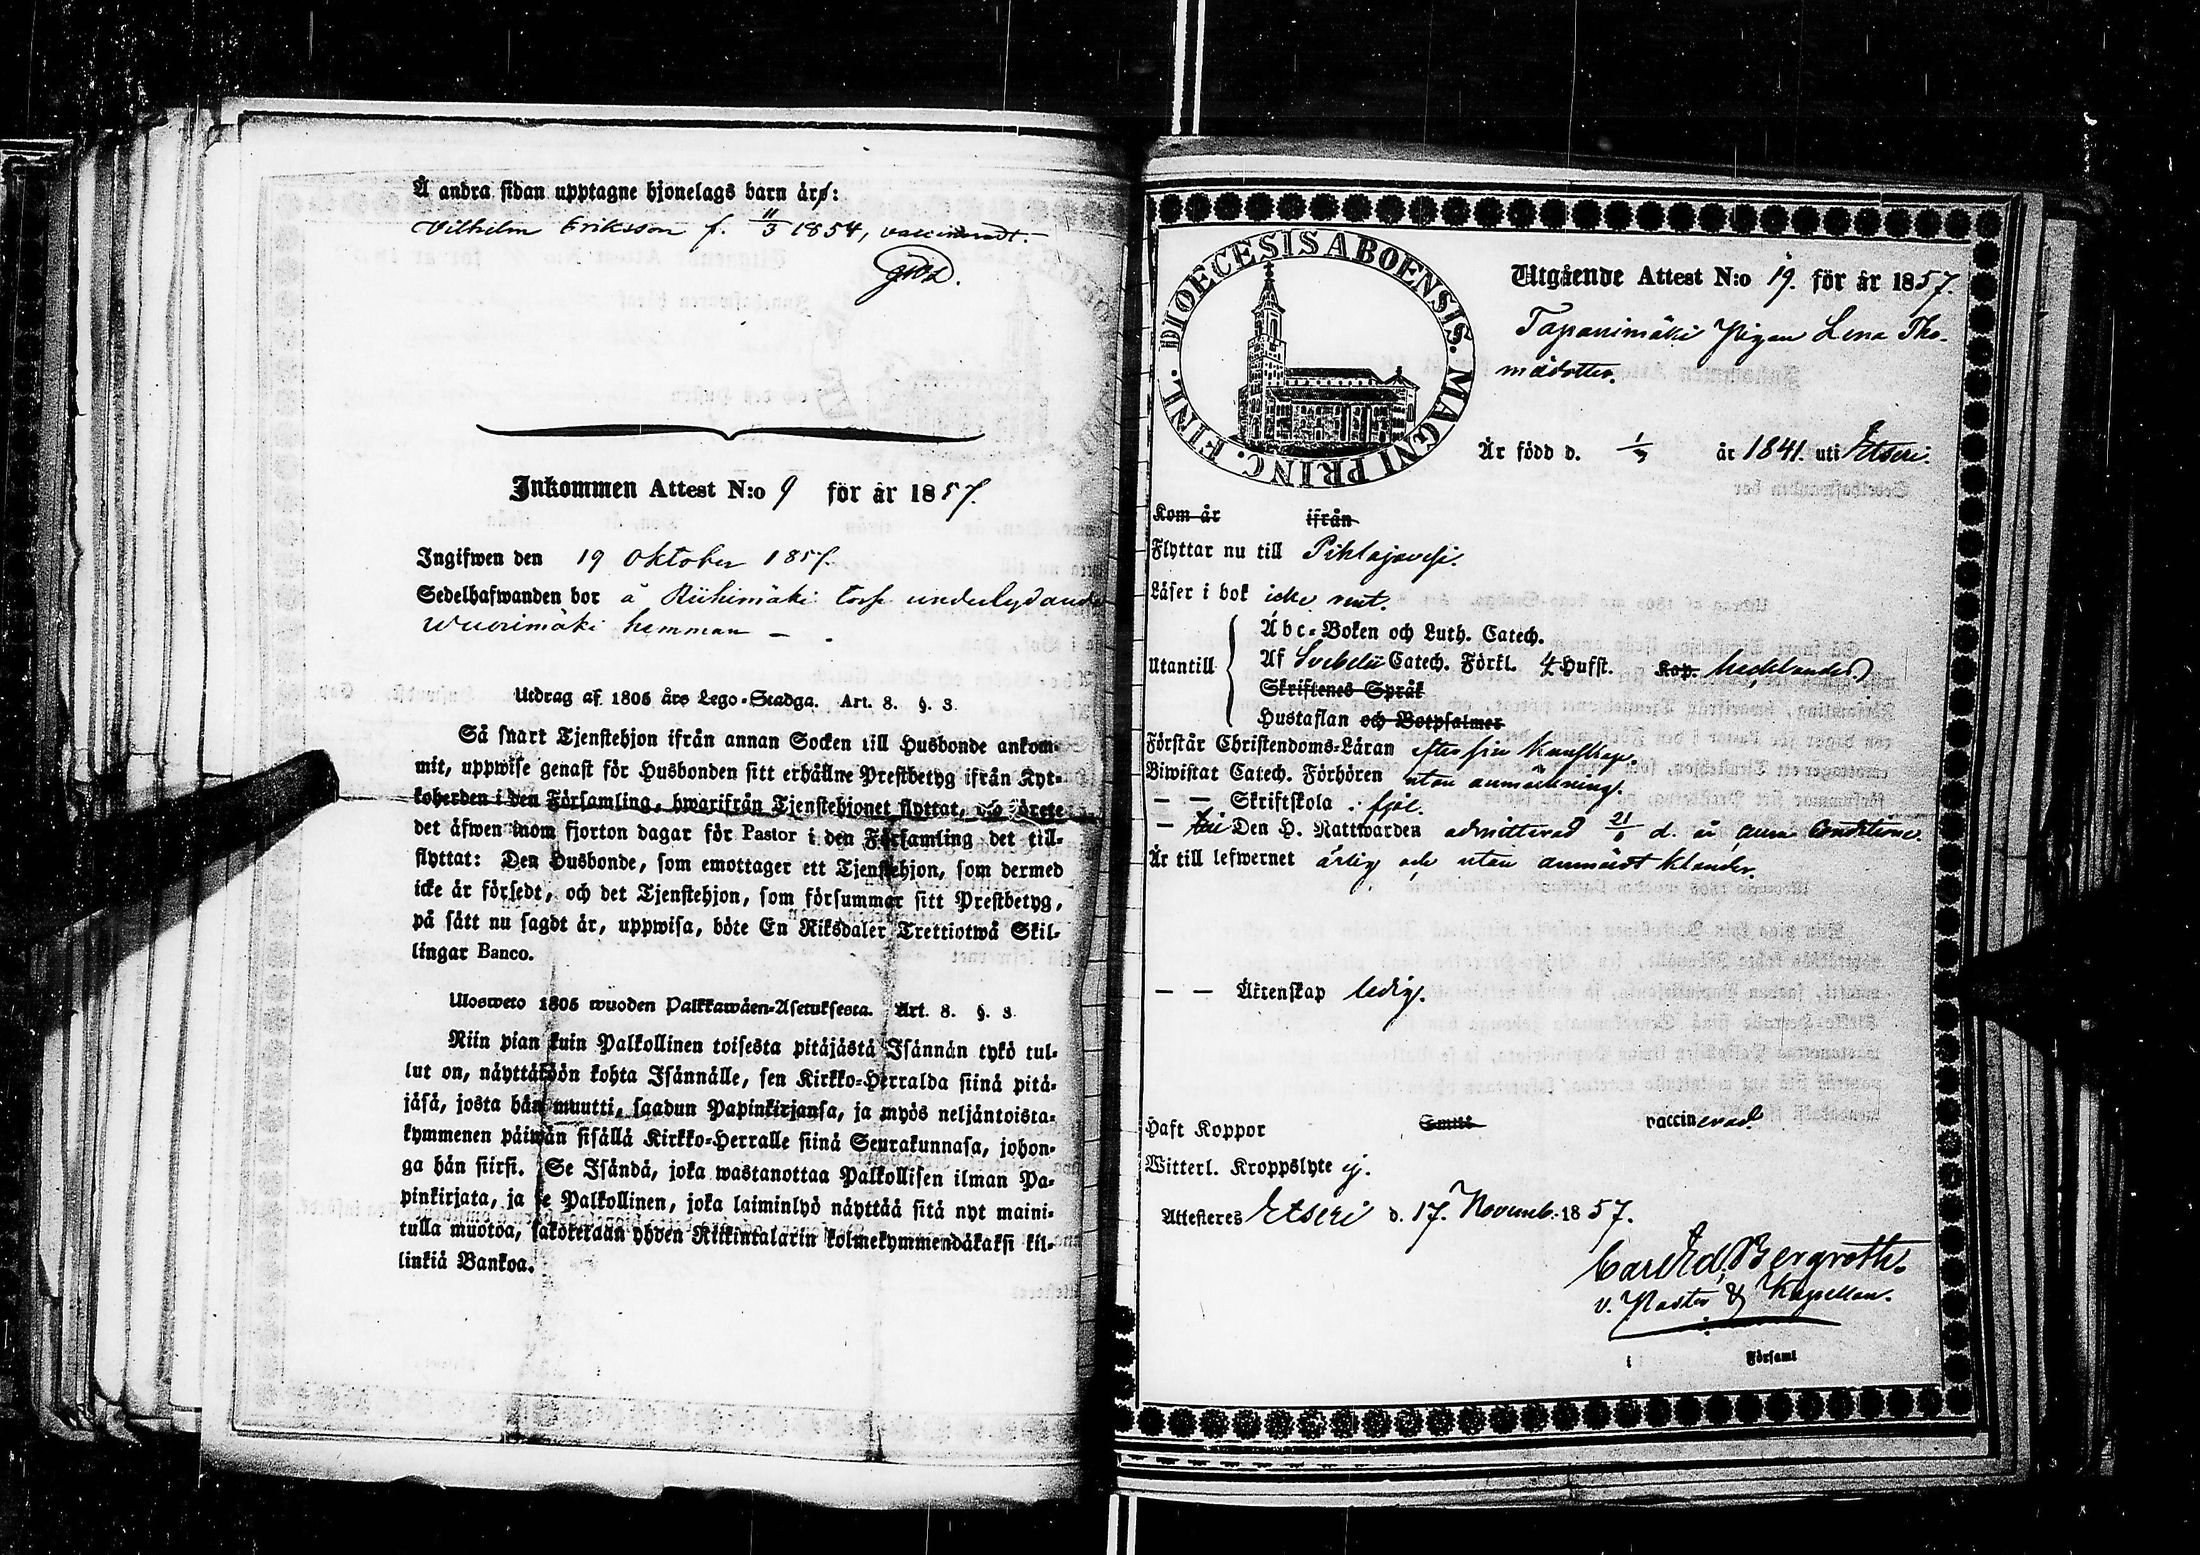 Å andra sidan upptagne hjonelags barn äro:
Vilhelm Eriksson f. 11/3 1854, vaccineradt.
Inkommen Attest N:o 9 för år 1857.
Ingifwen den 19 Oktober 1857.
Sedelhafwanden bor å Riihimäki torp underlydande
Wuorimäki hemman –
Utdrag af 1805 års Lego-Stadga. Art. 8. §. 3.
Så snart Tjenstehjon ifrån annan Socken till Husbonde ankom-
mit, uppwise genast för Husbonden sitt erhållne Prestbetyg ifrån Kyr-
koherden i den Församling, hwarifrån Tjenstehjonet flyttat, och förete
det äfwen inom fjorton dagar för Pastor i den Församling det till-
flyttat: Den Husbonde, som emottager ett Tjenstehjon, som dermed
icke är försedt, och det Tjenstehjon, som försummar sitt Prestbetyg,
på sätt nu sagdt är, uppwisa, böte En Riksdaler Trettiotwå Skil-
lingar Banco.
Uloswето 1805 wuoden Palkkawäen-Asetuksesta. Art. 8. §. 3.
Niin pian kuin Palkollinen toisesta pitäjästä Isännän tykö tul-
lut on, näyttäköön kohta Isännälle, sen Kirkko-Herralda siinä pitä-
jäsä, josta hän muutti, saadun Papinkirjansa, ja myös neljäntoista-
kymmenen päiwän sisällä Kirkko-Herralle siinä Seurakunnasa, johon-
ga hän siirsi. Se Isändä, joka wastanottaa Palkollisen ilman Pa-
pinkirjata, ja se Palkollinen, joka laiminlyö näyttää sitä nyt maini-
tulla muotoa, sakoteraan yhden Riikintalarin kolmekymmendäkaksi kil-
linkiä Bankoa.
DIOECESIS ABOENSIS. MAGNI PRINC. FINL.
Utgående Attest N:o 19. för år 1857.
Tapanimäki Pigan Lena Tho-
mädotter.
Är född d. 1/3 år 1841. uti Etseri.
Kom år ifrån
Flyttar nu till Pihlajavesi.
Läser i bok icke rent.
Utantill
Abc-Boken och Luth. Catech.
Af Svebelii Catech. Förkl. 4 Hufst. Kap. Medelander
Skriftenes Språk
Hustaflan och Botpsalmer
Förstår Christendoms-Läran efter sin kunskap.
Biwistat Catech. Förhören utan anmärkning.
— — Skriftskola
— till Den H. Nattwarden admitterad d. å. cum conditione.
Är till lefwernet ärlig och utan anmärkt klander.
— — Äktenskap ledig.
Haft Koppor Smitt vaccinerad
Witterl. Kroppslyte ej.
Attesteres Etseri d. 17. Novemb. 1857.
Carl Ad. Bergroth.
v. Pastor & Kapellan.
i Församl